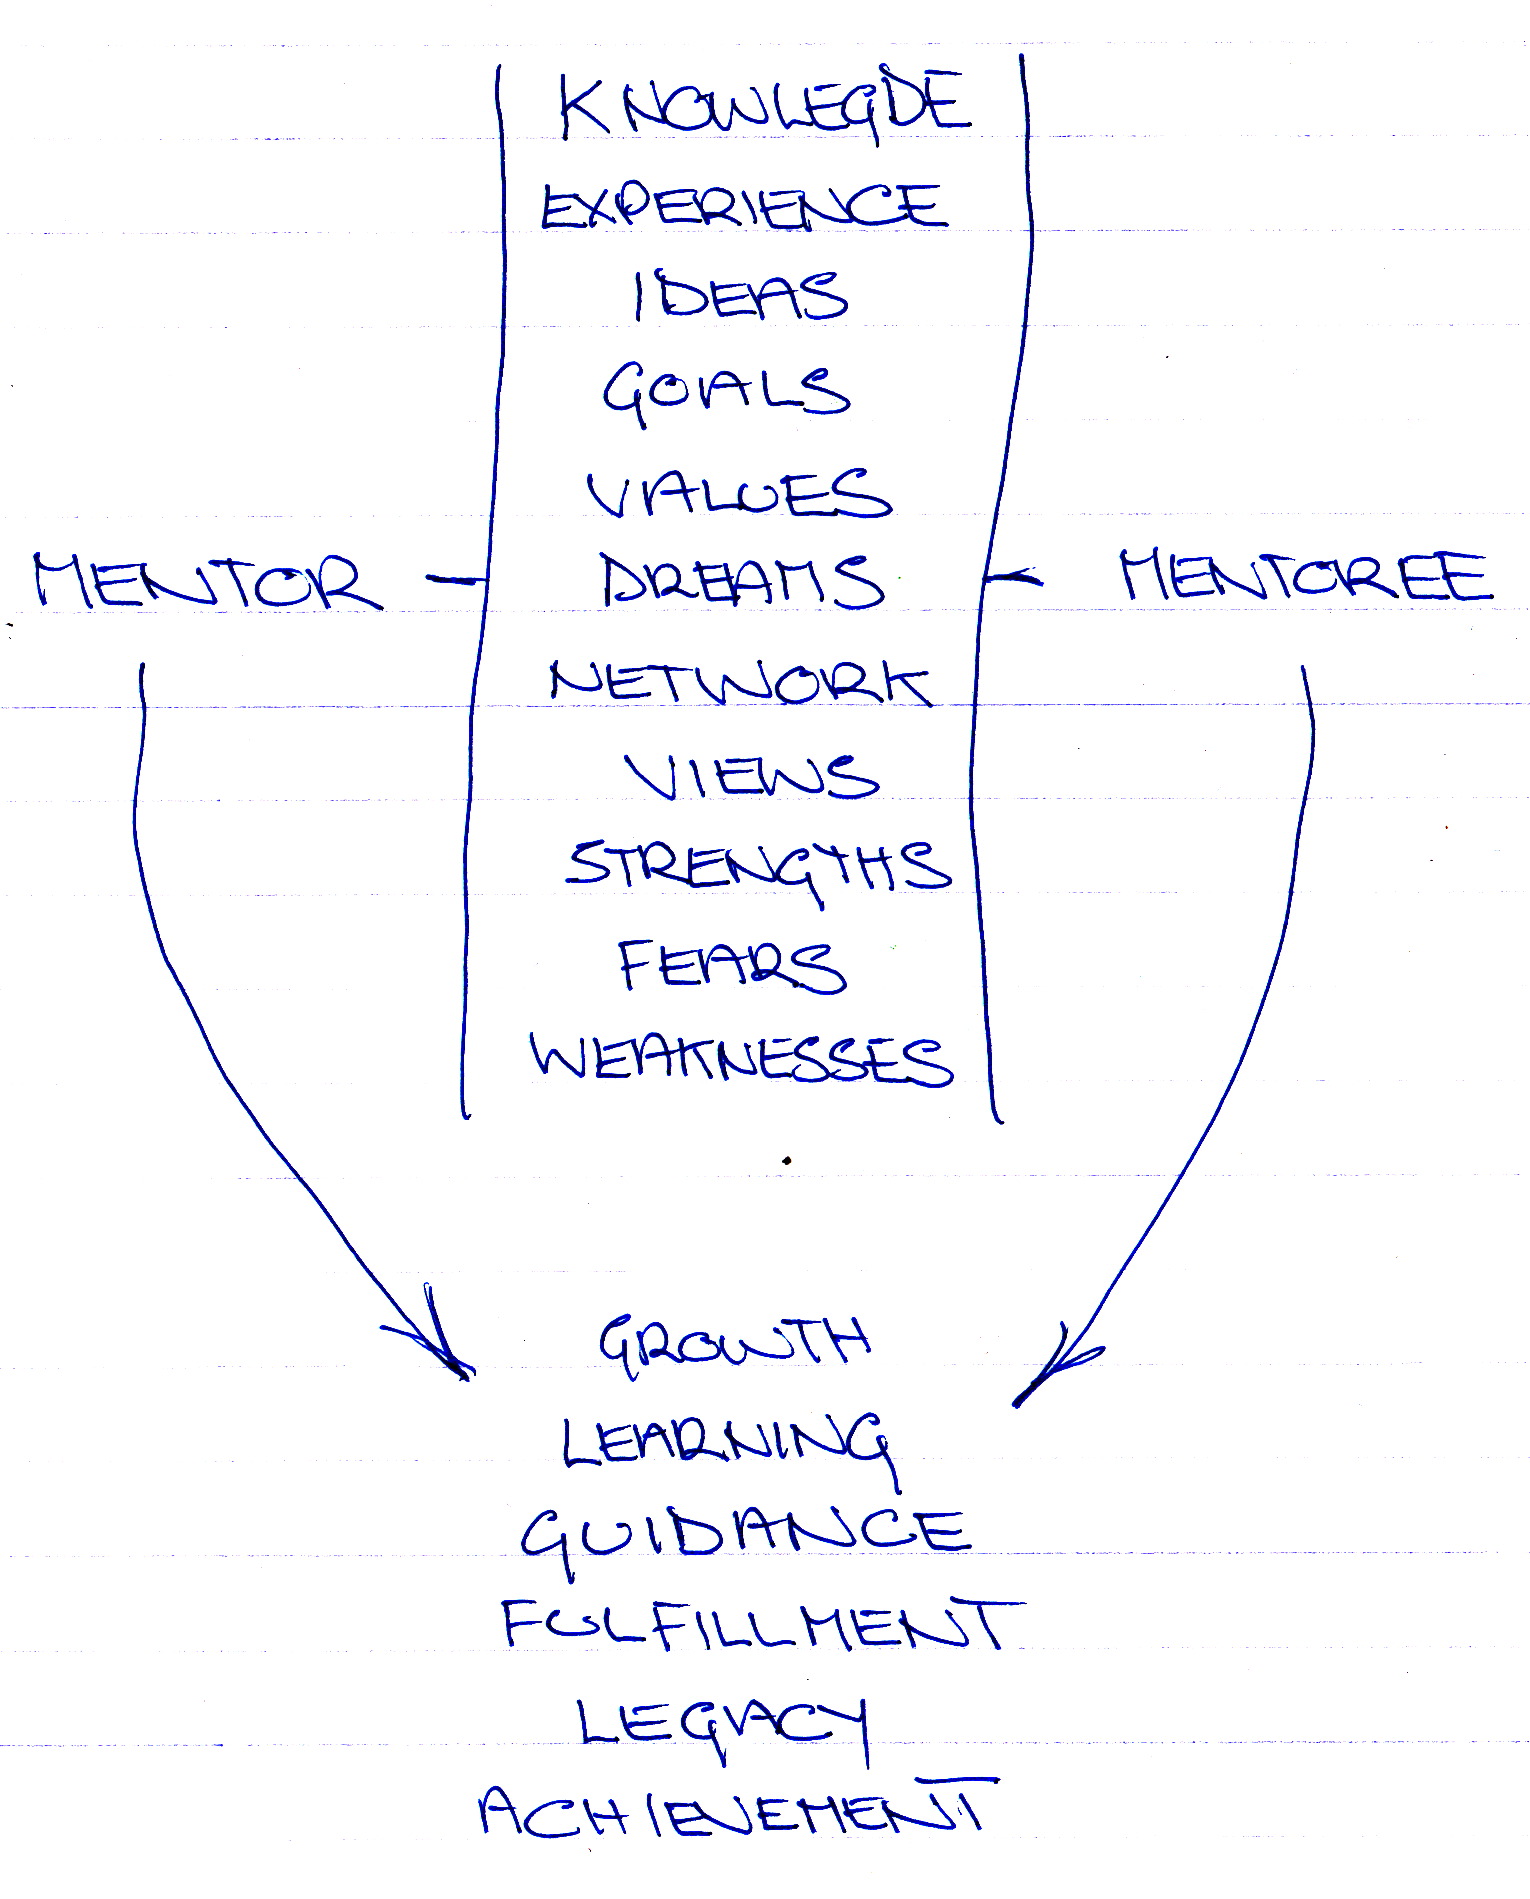 KNOWLEGDE
EXPERIENCE
IDEAS
GOALS
VALUES
MENTOR - DREAMS - MENTOREE
NETWORK
VIEWS
STRENGTHS
FEARS
WEAKNESSES
GROWTH
LEARNING
GUIDANCE
FULFILLMENT
LEGACY
ACHIEVEMENT